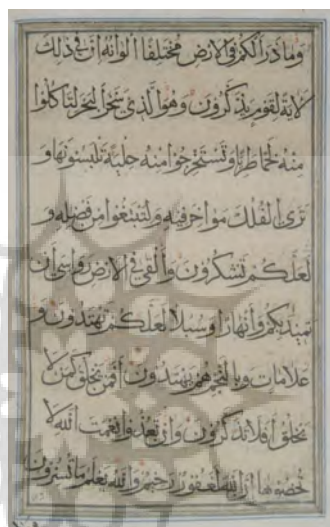 وَمَا ذَرَأَ لَكُمْ فِي الْأَرْضِ مُخْتَلِفًا أَلْوَانُهُ إِنَّ فِي ذَلِكَ
لَآيَةً لِقَوْمٍ يَذَّكَّرُونَ وَهُوَ الَّذِي سَخَّرَ الْبَحْرَ لِتَأْكُلُوا
مِنْهُ لَحْمًا طَرِيًّا وَتَسْتَخْرِجُوا مِنْهُ حِلْيَةً تَلْبَسُونَهَا وَ
تَرَى الْفُلْكَ مَوَاخِرَ فِيهِ وَلِتَبْتَغُوا مِنْ فَضْلِهِ وَ
لَعَلَّكُمْ تَشْكُرُونَ وَأَلْقَى فِي الْأَرْضِ رَوَاسِيَ أَنْ
تَمِيدَ بِكُمْ وَأَنْهَارًا وَسُبُلًا لَعَلَّكُمْ تَهْتَدُونَ وَ
عَلَامَاتٍ وَبِالنَّجْمِ هُمْ يَهْتَدُونَ أَفَمَنْ يَخْلُقُ كَمَنْ لَا
يَخْلُقُ أَفَلَا تَذَكَّرُونَ وَإِنْ تَعُدُّوا نِعْمَتَ اللَّهِ لَا
تُحْصُوهَا إِنَّ اللَّهَ لَغَفُورٌ رَحِيمٌ وَاللَّهُ يَعْلَمُ مَا تُسِرُّونَ